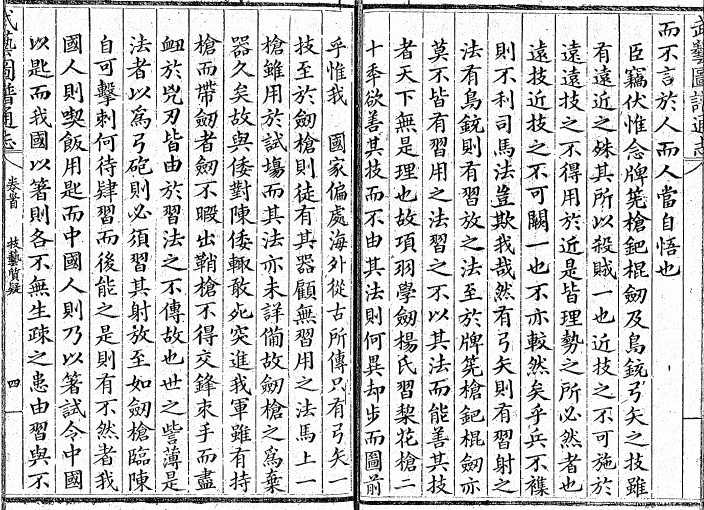 武藝圖譜通志
而不言於人而人當自悟也
臣竊伏惟念牌筅槍鈀棍劒及鳥銃弓矢之技雖
有遠近之殊其所以殺賊一也近技之不可施於
遠遠技之不得用於近是皆理勢之所必然者也
遠技近技之不可闕一也不亦較然矣乎兵不襍
則不利司馬法豈欺我哉然有弓矢則有習射之
法有鳥銃則有習放之法至於牌筅槍鈀棍劒亦
莫不皆有習用之法習之不以其法而能善其技
者天下無是理也故項羽學劒楊氏習棃花槍二
十年欲善其技而不由其法則何異却步而圖前
乎惟我 國家偏處海外從古所傳只有弓矢一
技至於劒槍則徒有其器顧無習用之法馬上一
槍雖用於試塲而其法亦未詳備故劒槍之爲棄
器久矣故與倭對陳倭輒敢死突進我軍雖有持
槍而帶劒者劒不暇出鞘槍不得交鋒束手而盡
衄於兇刃皆由於習法之不傳故也世之訾薄是
法者以爲弓砲則必須習其射放至如劒槍臨陳
自可擊刺何待肄習而後能之是則有不然者我
國人則喫飯用匙而中國人則乃以箸試令中國
以匙而我國以箸則各不無生疎之患由習與不
武藝圖譜通志 卷首 技藝質疑 四